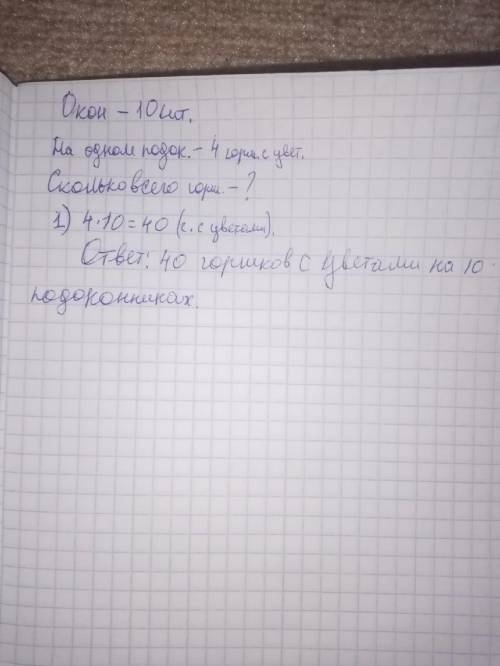 Окон - 10 шт.
На одном подок. - 4 горш. с цвет.
Сколько всего горш. - ?
1) 4·10=40 (г. с цветами).
Ответ: 40 горшков с цветами на 10
подоконниках.